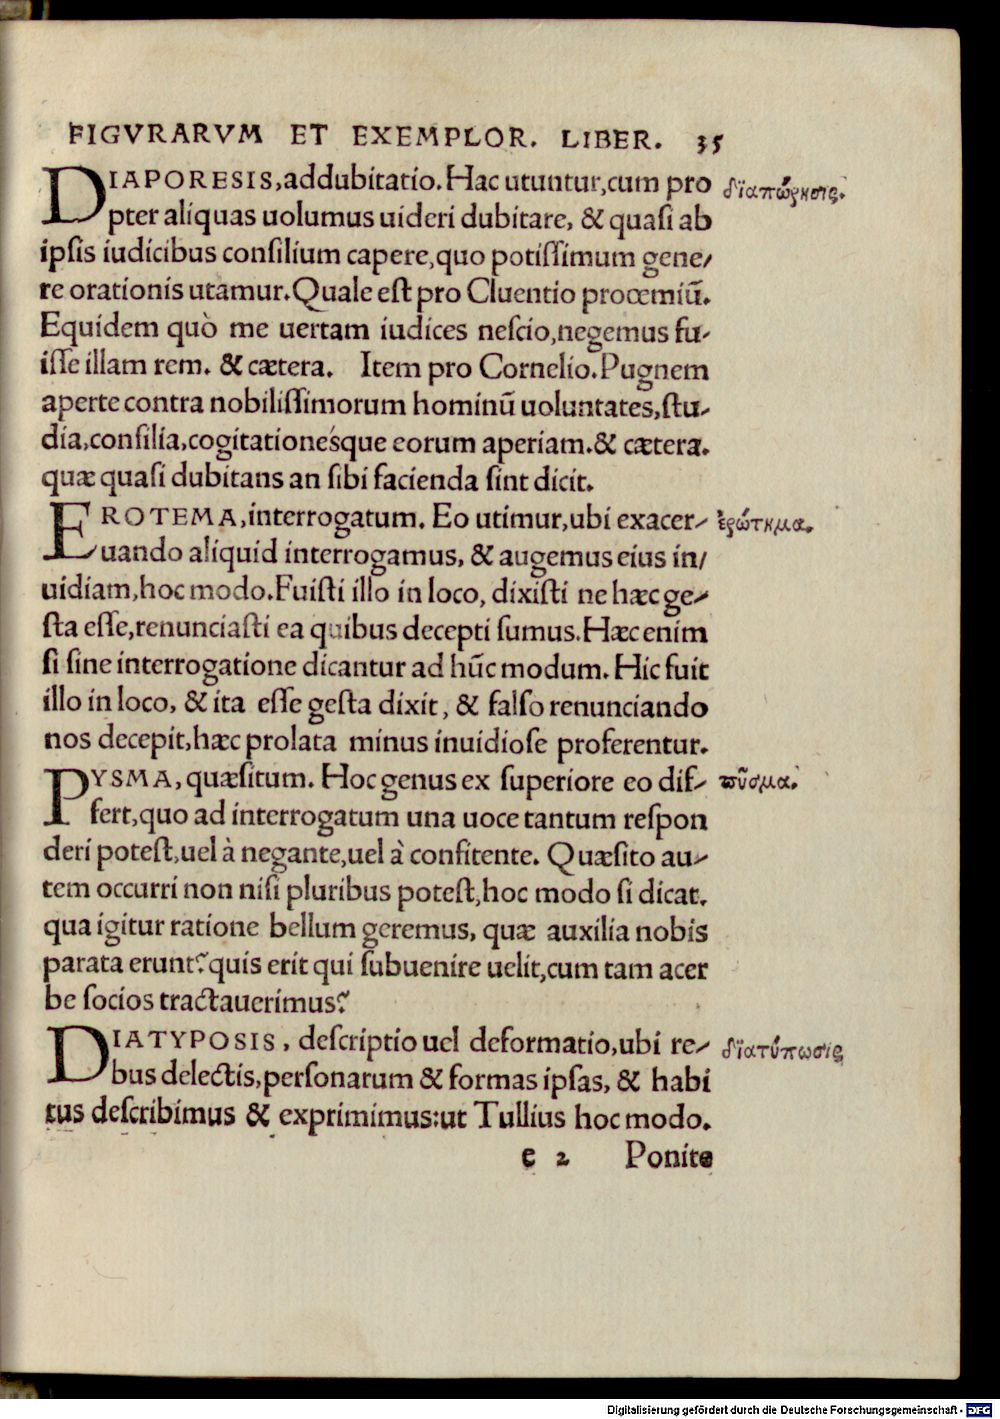 FIGVRARVM ET EXEMPLOR. LIBER. 35
DIAPORESIS,addubitatio.Hac utuntur,cum pro διαπόρησις.
pter aliquas uolumus uideri dubitare, & quasi ab
ipsis iudicibus consilium capere,quo potissimum gene/
re orationis utamur.Quale est pro Cluentio procemiũ.
Equidem quò me uertam iudices nescio,negemus fu/
isse illam rem. & cætera. Item pro Cornelio.Pugnem
aperte contra nobilissimorum hominũ uoluntates,stu/
dia,consilia,cogitationésque eorum aperiam.& cætera.
quæ quasi dubitans an sibi facienda sint dicit.
EROTEMA,interrogatum. Eo utimur,ubi exacer/ ἐρώτημα.
uando aliquid interrogamus, & augemus eius in/
uidiam,hoc modo.Fuisti illo in loco, dixisti ne hæc ge/
sta esse,renunciasti ea quibus decepti sumus.Hæc enim
si sine interrogatione dicantur ad hũc modum. Hic fuit
illo in loco, & ita esse gesta dixit, & falso renunciando
nos decepit,hæc prolata minus inuidiose proferentur.
PYSMA, quæsitum. Hoc genus ex superiore eo dif/ πῦσμα.
fert,quo ad interrogatum una uoce tantum respon
deri potest,uel à negante,uel à confitente. Quæsito au/
tem occurri non nisi pluribus potest,hoc modo si dicat.
qua igitur ratione bellum geremus, quæ auxilia nobis
parata erunt?quis erit qui subuenire uelit,cum tam acer
be socios tractauerimus?
DIATYPOSIS, descriptio uel deformatio,ubi re/ διατύπωσις
bus delectis,personarum & formas ipsas, & habi
tus describimus & exprimimus:ut Tullius hoc modo.
e 2 Ponite
Digitalisierung gefördert durch die Deutsche Forschungsgemeinschaft - DFG